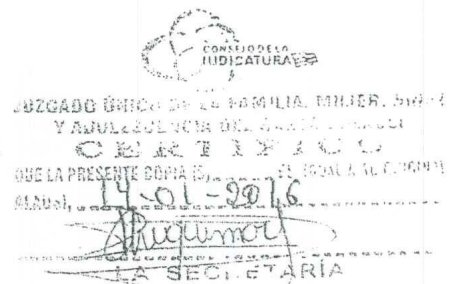 CONSEJO DE LA
JUDICATURA
JUZGADO ÚNICO DE LA FAMILIA, MUJER, NIÑEZ
Y ADOLESCENCIA DEL
CERTIFICO
QUE LA PRESENTE COPIA ES IGUAL A SU ORIGINAL
14-01-2016
LA SECRETARÍA